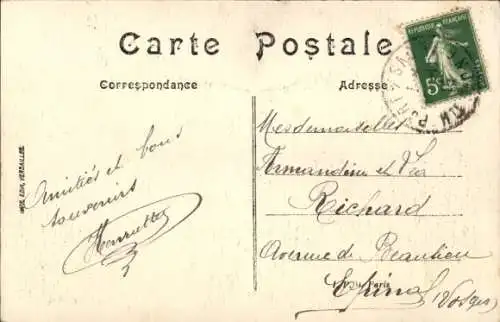 Carte Postale
Correspondance
Adresse
REPUBLIQUE FRANÇAISE
5c
Amitiés et bons
souvenirs
Mesdemoiselles
Armandine et
Richard
Avenue de Beaulieu
Epinal (Vosges)
Paris
VERSAILLES